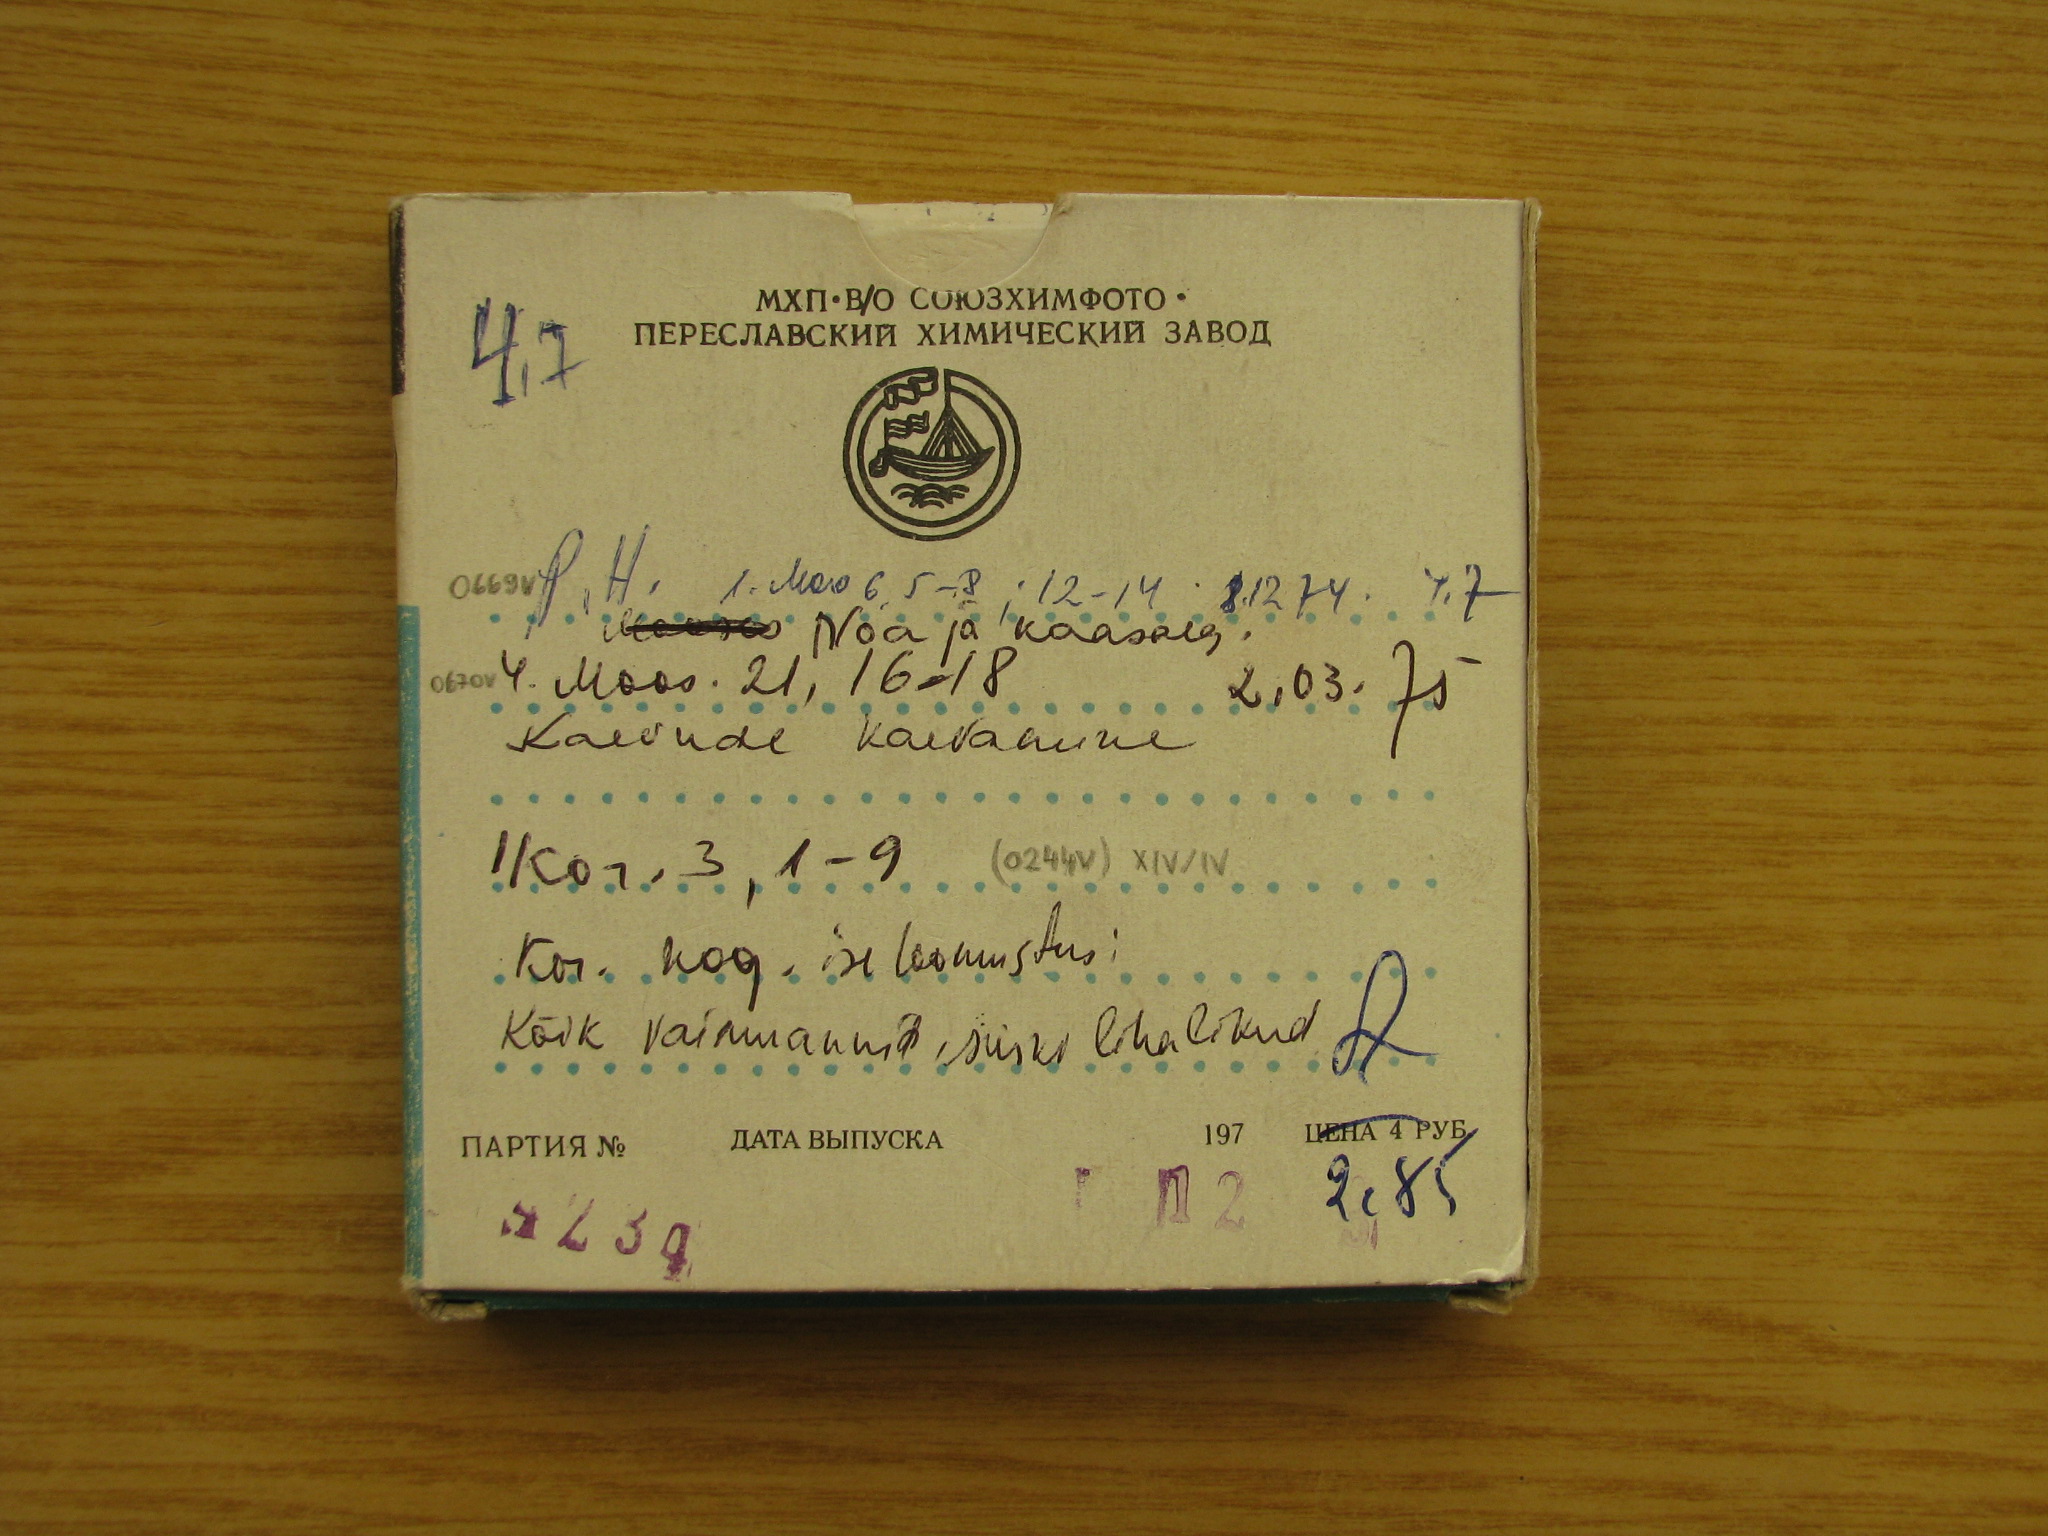 МХП·В/О СОЮЗХИМФОТО·
ПЕРЕСЛАВСКИЙ ХИМИЧЕСКИЙ ЗАВОД
4,7
0669v H. 1. Moos 6, 5-8; 12-14. 1.12 74. 4,7
Noa ja kaasaeg.
0670v 4. Moos. 21, 16-18 2.03.75
Kaevude kaevamine
I Kor. 3, 1-9 (0244v) XIV/IV
Kor. kog. iseloomustus:
Kõik vaimuannid, siiski lihalikud
ПАРТИЯ № ДАТА ВЫПУСКА 197 ЦЕНА 4 РУБ.
239 П 2 2,85